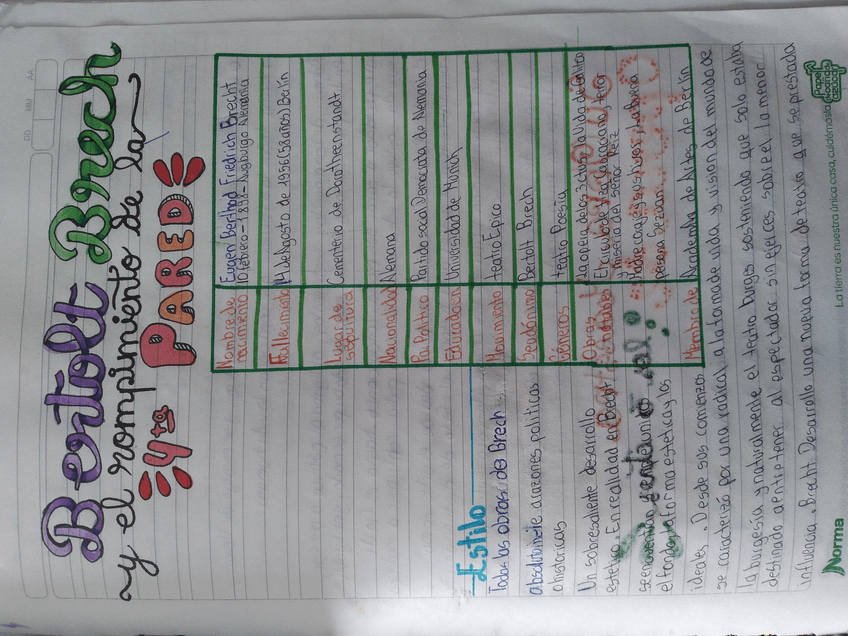 Bertolt Brech
y el rompimiento de la
4ta PARED
Nombre de nacimiento Eugen Berthod Friedrich Brecht
10 febrero - 1898 - Augburgo Alemania
Fallecimiento 14 de Agosto de 1956 (58 años) Berlín
Lugar de sepultura Cementerio de Dorotheenstandt
Nacionalidad Alemana
Pa Político Partido social Democrata de Alemania
Educado en Universidad de Múnich
Movimiento teatro Epico
Seudónimo Bertolt Brech
Géneros teatro Poesía
Obras notables La opera de los 3 ctvs, La vida de Galileo
El circulo de tiza caucaciano, terror
y miseria del señor Reiz
Madre coraje y sus hijos, La buena
persona Sezouan
Miembro de Academia de Artes de Berlín
Estilo
Todas las obras de Brech
absolutamente a razones políticas
o historicas
Un sobresaliente desarrollo
estetico. En realidad en Brecht
se encuentran
el fondo, la forma estetica y los
ideales. Desde sus comienzos
se caracterizó por una radical a la forma de vida y vision del mundo de
la burgesía y naturalmente el teatro burges sosteniendo que solo estaba
destinado a entretener al espectador sin ejerces sobre el la menor
influencia. Brecht Desarrollo una nueva forma de teatro que se prestada
Norma
La tierra es nuestra única casa, cuidémosla
DD MM AA